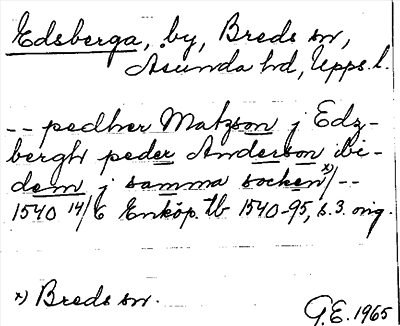 Edsberga, by, Breds sn,
Åsunda hd, Upps. l.
-- pedher Matzson j Edz-
bergh peder Anderson ibi-
dem j samma socken x)/--
1540 14/6 Enköp. tb 1540-95, s. 3. orig.
x) Breds sn.
G.E. 1965